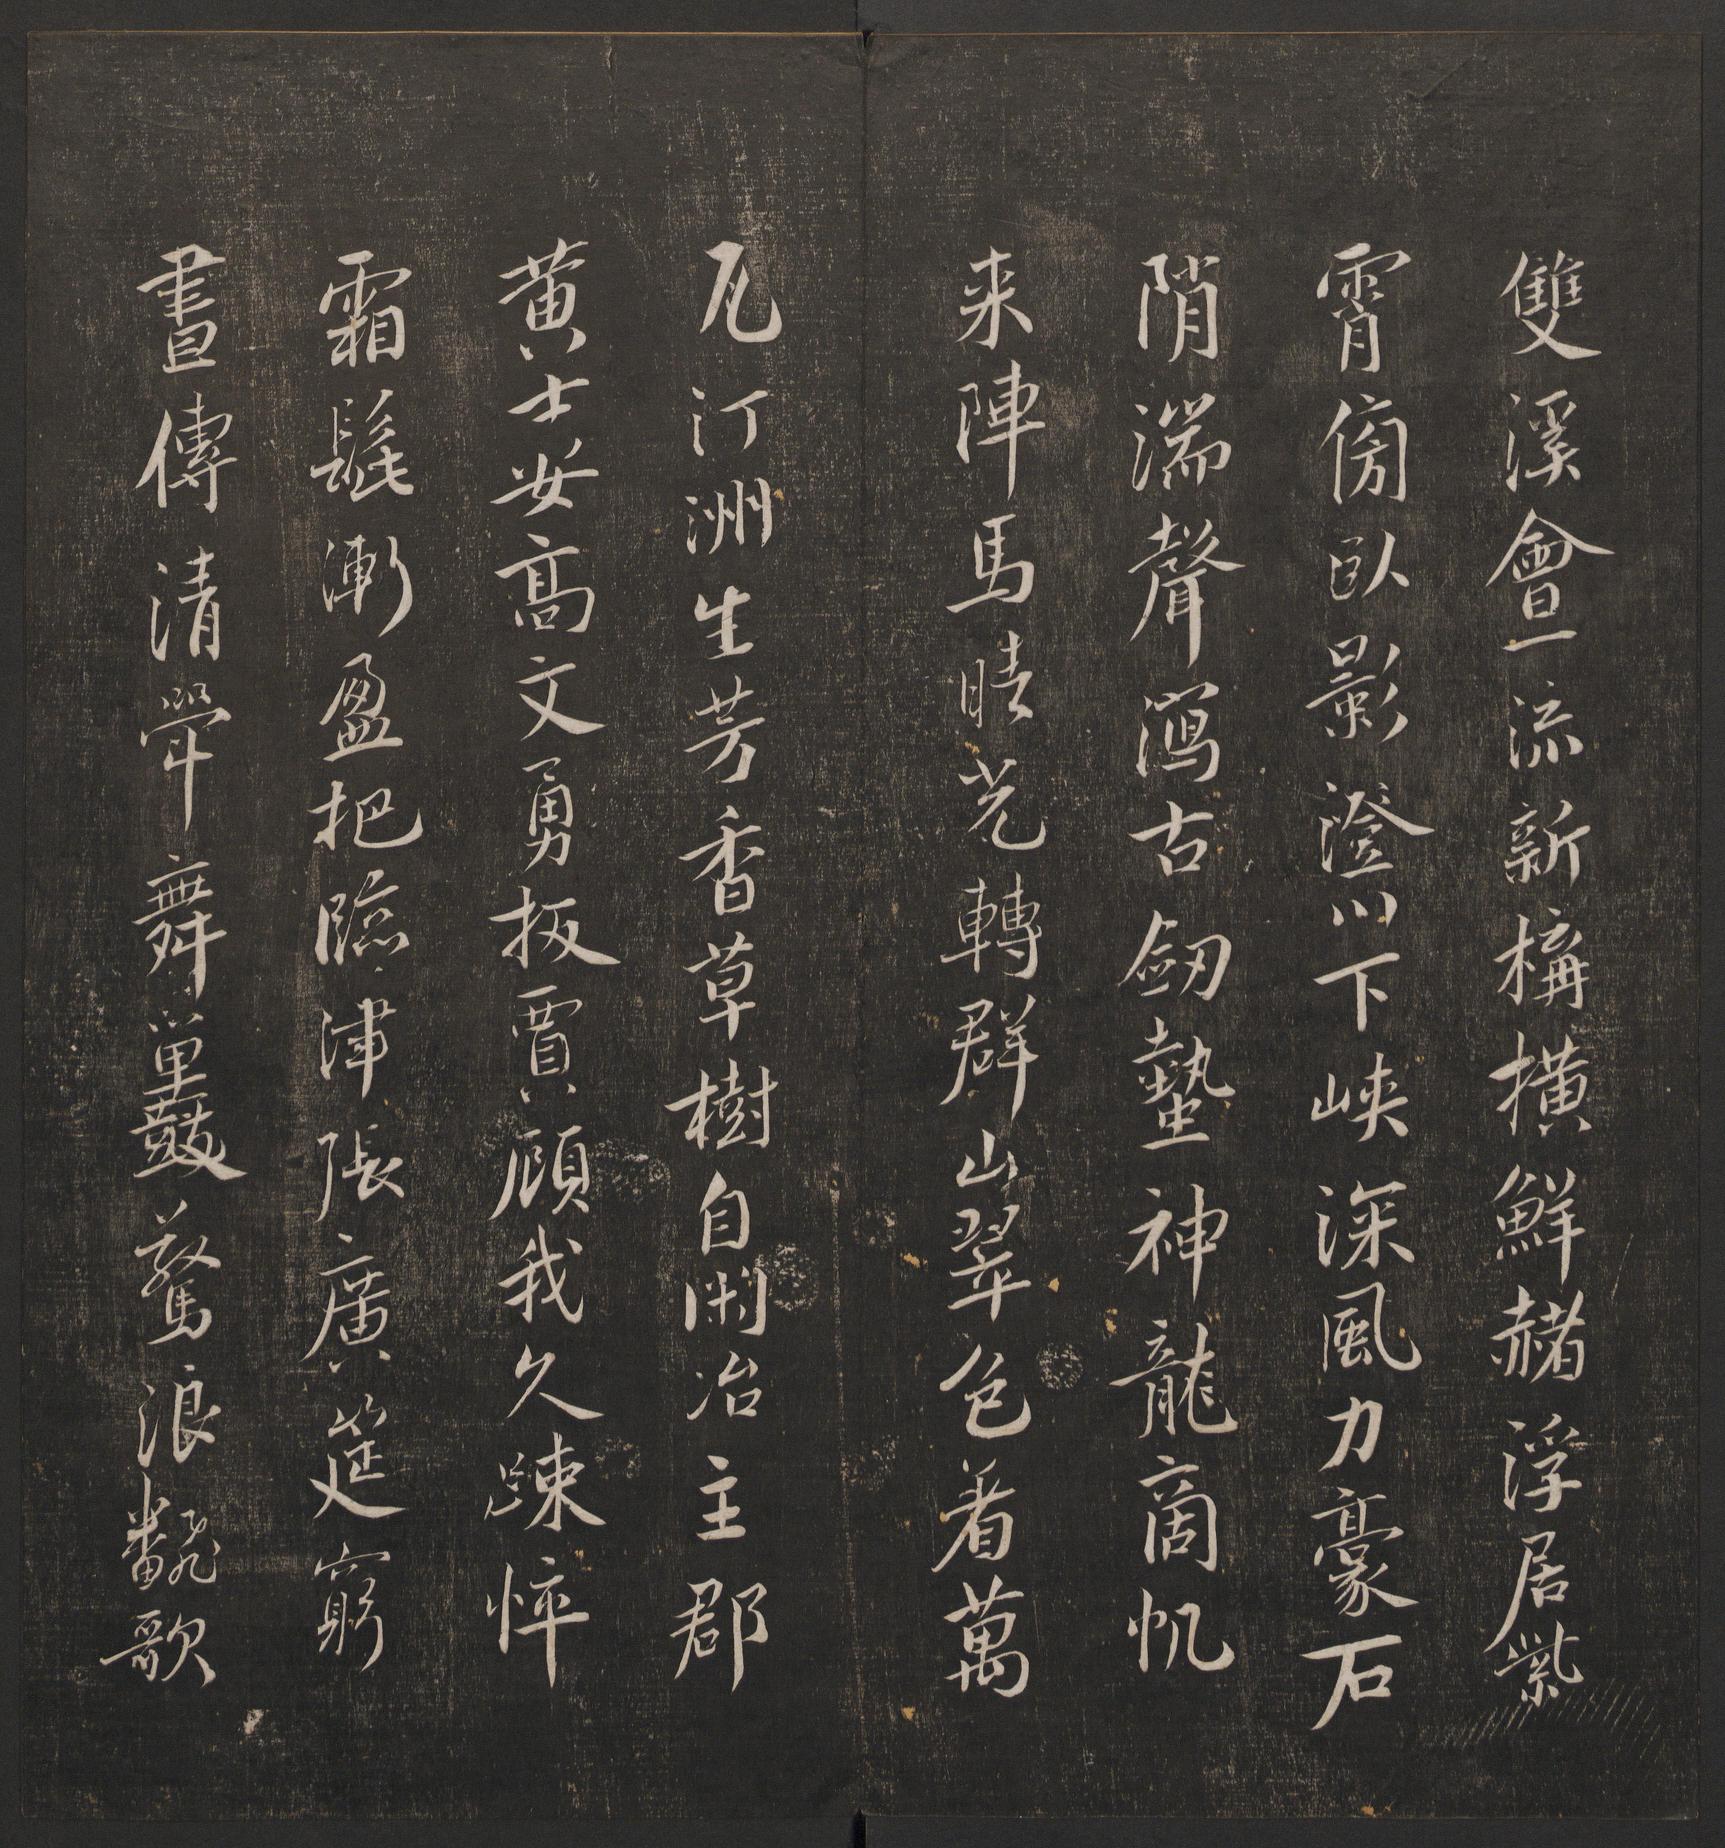 雙溪會一流新構橫鮮赭浮居紫
霄傍臥影澄川下峽深風力豪石
陗湍聲瀉古劔蟄神龍商帆
来陣馬晴光轉群山翠色着萬
瓦汀洲生芳香草樹自閑冶主郡
黄士安高文勇扳賈顧我久疎悴
霜髭漸盈把臨津張廣筵窮
晝傳清斝舞鼉驚浪飜歌